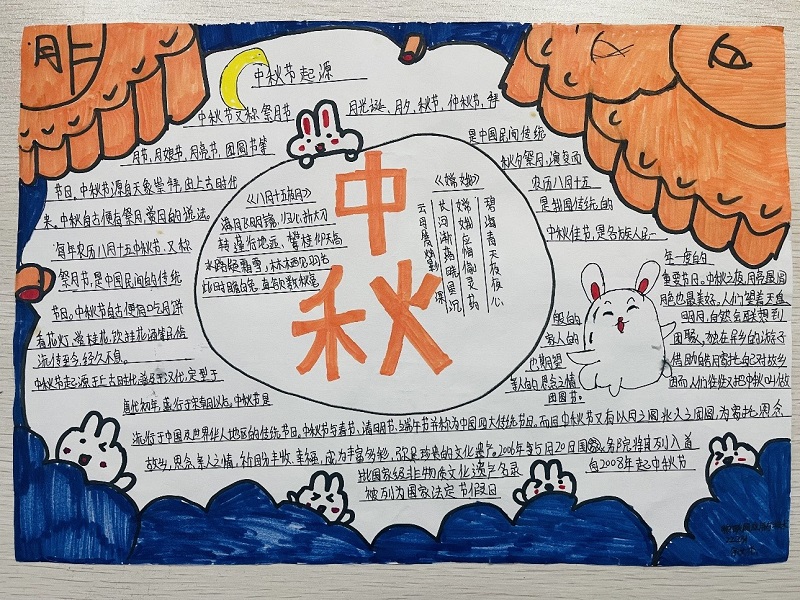 中秋节起源
中秋节又称祭月节
月光诞、月夕、秋节、仲秋节、拜
月节、月娘节、月亮节、团圆节等
节日，中秋节源自天象崇拜，由上古时代
来。中秋自古便有祭月、赏月的说法。
每年农历八月十五中秋节，又称
祭月节，是中国民间的传统
节日。中秋节自古便有吃月饼
看花灯、赏桂花、饮桂花酒等民俗
流传至今，经久不息。
中秋节起源于上古时代，普及于汉代，定型于
唐代初年，盛行于宋朝以后。中秋节是
《八月十五夜月》
满月飞明镜，归心折大刀
转蓬行地远，攀桂仰天高
水路疑霜雪，林栖见羽毛
此时瞻白兔，直欲数秋毫
中
秋
《嫦娥》
云母屏风烛影深
长河渐落晓星沉
嫦娥应悔偷灵药
碧海青天夜夜心
是中国民间传统
秋夕祭月，演变而
农历八月十五
是我国传统的
中秋佳节，是各族人民一
年一度的
重要节日。中秋之夜，月亮最圆
月色也最美好。人们望着玉盘
般的
明月，自然会联想到
家人的
团聚，独在异乡的游子
也期望
借助皓月寄托自己对故乡
亲人的思念之情
因而人们往往又把中秋叫做
团圆节。
流行于中国及世界华人地区的传统节日。中秋节与春节、清明节、端午节并称为中国四大传统节日。而且中秋节又有以月之圆兆人之团圆为寄托思念
故乡，思念亲人之情，祈盼丰收、幸福，成为丰富多彩、弥足珍贵的文化遗产。2006年5月20日国务院将其列入首
批国家级非物质文化遗产名录
自2008年起中秋节
被列为国家法定节假日